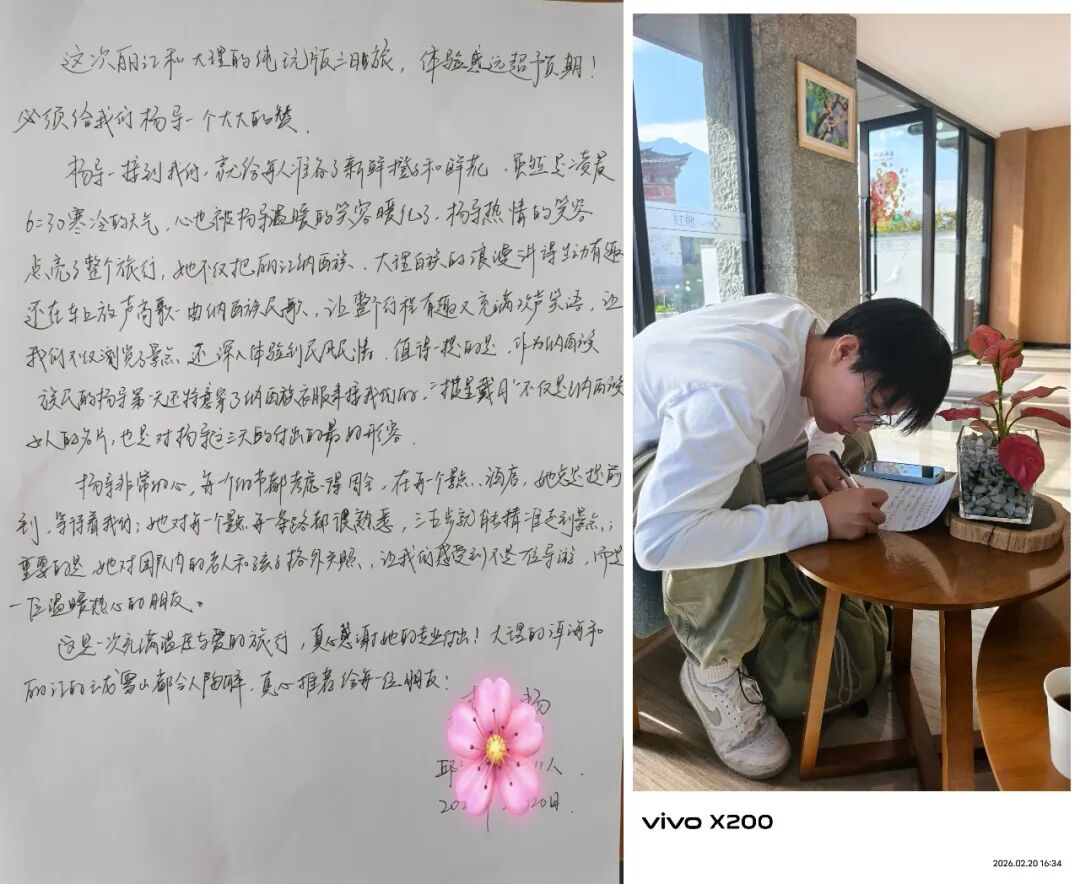 这次丽江和大理的纯玩版三日旅，体验感远超预期！
必须给我们杨导一个大大的赞。
杨导一接到我们，就给每人准备了新鲜橙子和鲜花，虽然是凌晨
6:30寒冷的天气，心也被杨导温暖的笑容暖化了，杨导热情的笑容
点亮了整个旅行，她不仅把丽江纳西族、大理白族的浪漫讲得生动有趣
还在车上放声高歌一曲纳西族民歌，让整个行程有趣又充满欢声笑语，让
我们不仅浏览了景点，还深入体验到民风民情。值得一提的是，作为纳西族
族民的杨导第一天还特意穿了纳西族衣服来接我们的，“披星戴月”不仅是纳西族
女人的名片，也是对杨导这三天的付出的最的形容。
杨导非常的心，每个细节都考虑得周全，在每个景点、酒店，她总是提前
到，等待着我们；她对每一个景点每一条路都很熟悉，三五步就能精准走到景点；
重要的是，她对团队内的老人和孩子格外关照，让我们感受到不是一位导游，而是
一位温暖热心的朋友。
这是一次充满温度与爱的旅行，真心感谢她的专业付出！大理的洱海和
丽江的玉龙雪山都令人陶醉，真心推荐给每一位朋友！
杨
人
20日.
vivo X200
2026.02.20 16:34